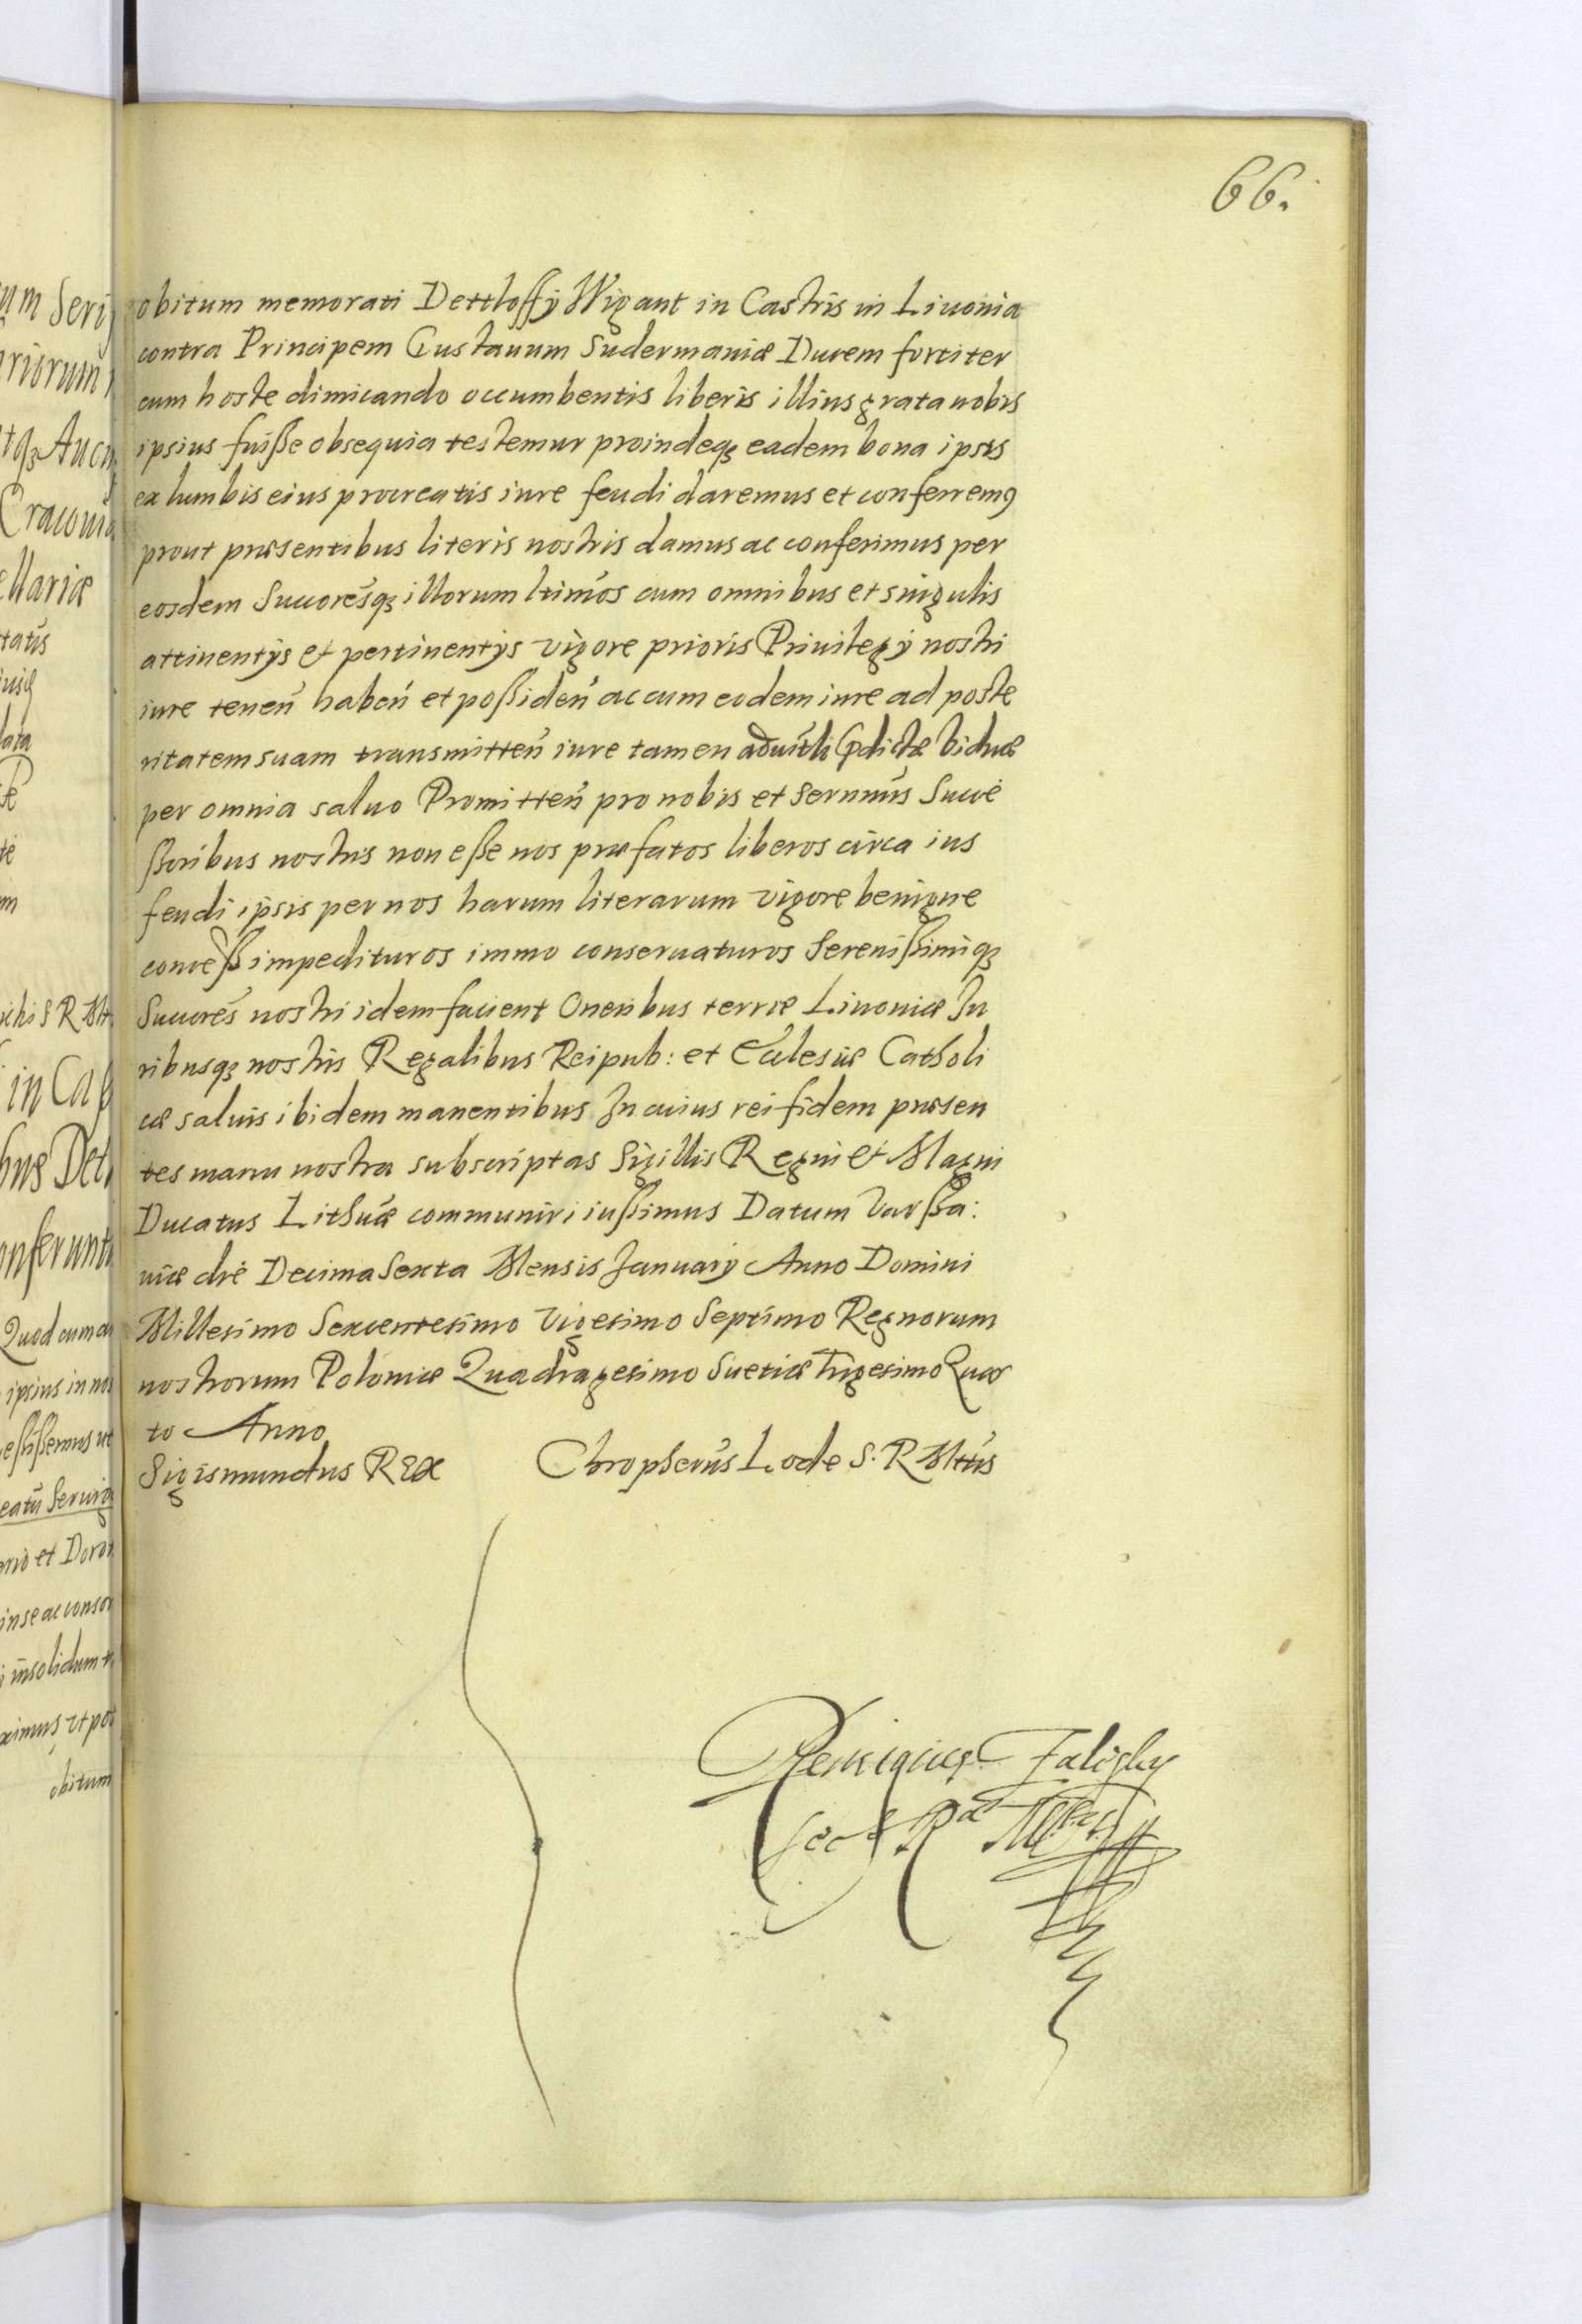 66.
obitum memorati Dettloffy Wigant in Castris in Liuonia
contra Principem Gustauum Sudermaniæ Ducem fortiter
cum hoste dimicando occumbentis liberis illius grata nobis
ipsius fuiße obsequia testemur proindeqꝫ eadem bona ipsis
ex lumbis eius procreatis iure feudi daremus et conferremꝰ
prout præsentibus literis nostris damus ac conferimus per
eosdem Succoresqꝫ illorum ltimos cum omnibus et singulis
attinentÿs et pertinentÿs vigore prioris Priuilegÿ nostri
iure tenen haben et poßiden ac cum eodem iure ad poste
ritatem suam transmitten iure tamen aduitli viduæ
per omnia saluo Promitten pro nobis et Sermus Succe
ßoribus nostris non eße nos præfatos liberos circa ius
feudi ipsis per nos harum literarum vigore benigne
conceß impedituros immo conseruaturos Sereníßimiqꝫ
Succores nostri idem facient Oneribus terræ Liuoniæ Iu
ribusqꝫ nostris Regalibus Reipub: et Ecclesiæ Catholi
cæ saluis ibidem manentibus In cuius rei fidem præsen
tes manu nostra subscriptas Sigillis Regni et Magni
Ducatus Lithuæ communiri iußimus Datum Varßa:
uiæ die Decima Sexta Mensis Januarÿ Anno Domini
Millesimo Sexcentesimo Vigesimo Septimo Regnorum
nostrorum Poloniæ Quadragesimo Suetiæ Trigesimo Quar
to Anno
Sigismundus REX Chropherus Lode S. R Mttis
Remigius
Sec R